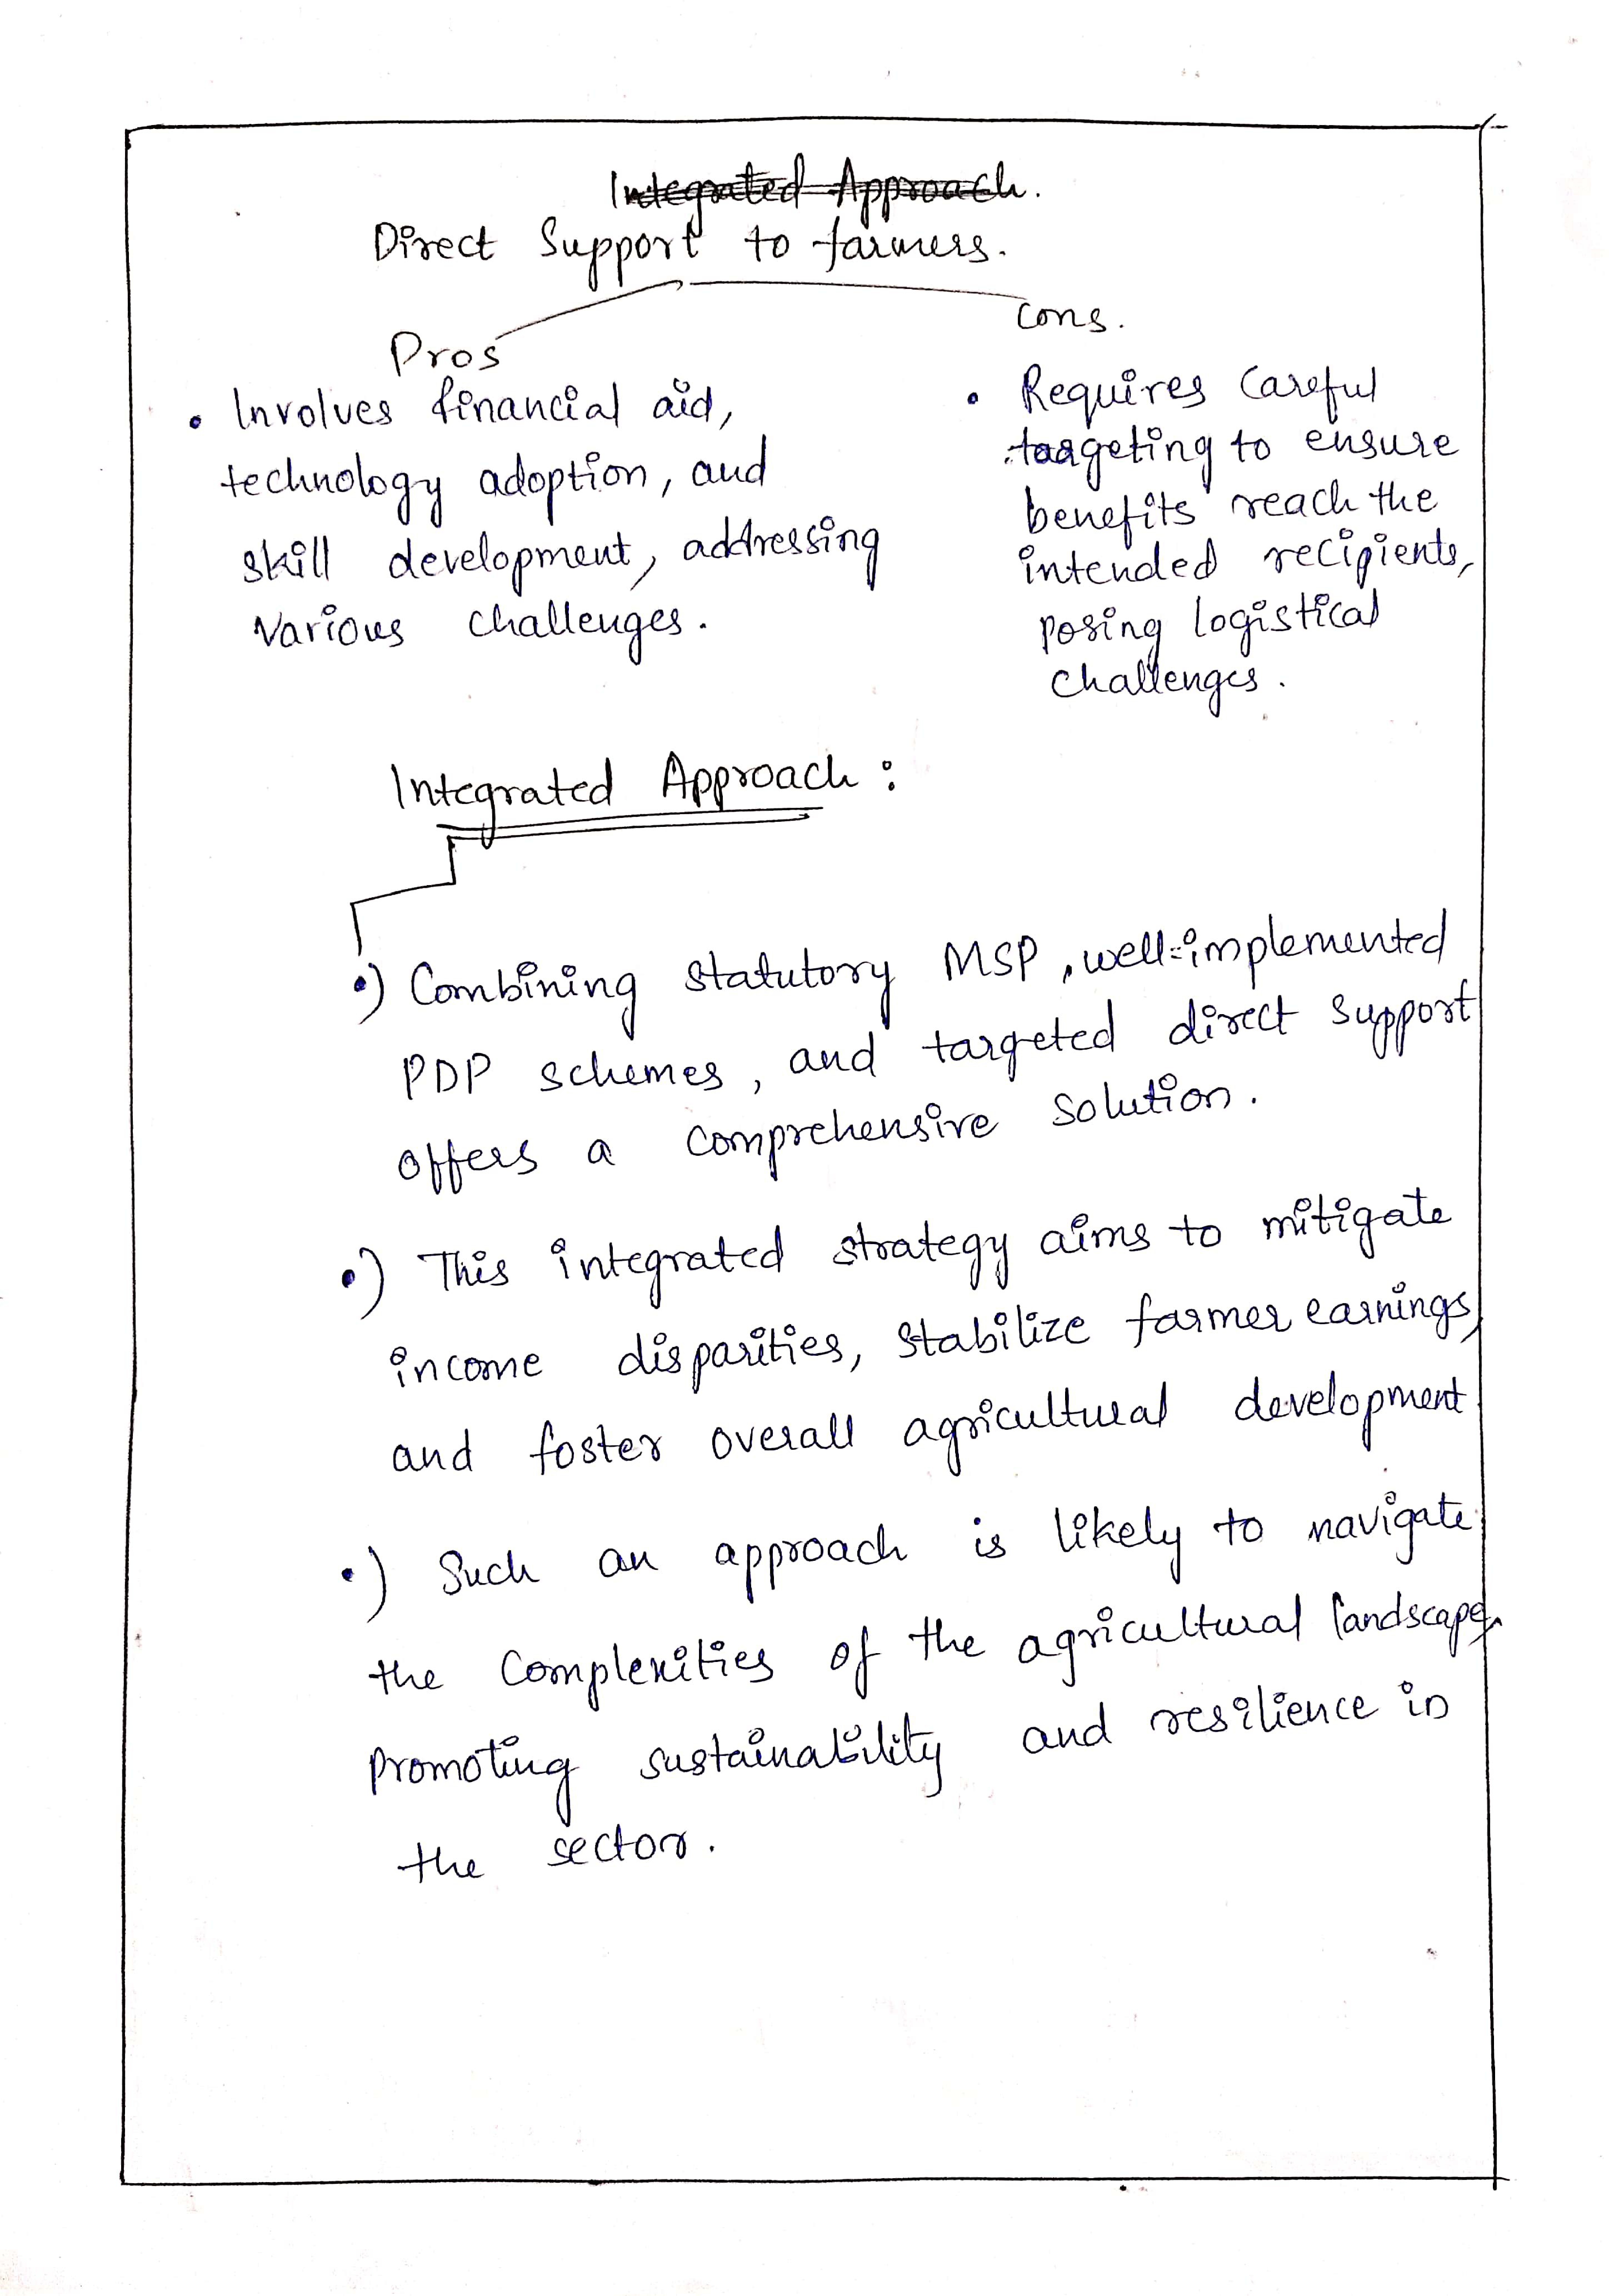 Integrated Approach.
Direct Support to farmers.
Pros
• Involves financial aid,
technology adoption, and
skill development, addressing
various challenges.
cons.
• Requires careful
targeting to ensure
benefits reach the
intended recipients,
posing logistical
challenges.
Integrated Approach :
•) Combining statutory MSP, well-implemented
PDP schemes, and targeted direct support
offers a comprehensive solution.
•) This integrated strategy aims to mitigate
income disparities, stabilize farmer earnings,
and foster overall agricultural development
•) Such an approach is likely to navigate
the complexities of the agricultural landscape,
promoting sustainability and resilience in
the sector.